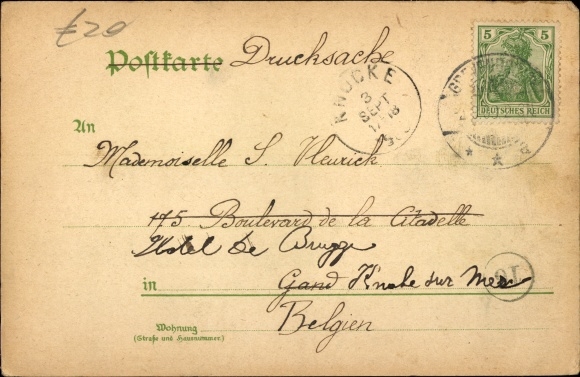 £20
Postkarte Drucksache
5 5
DEUTSCHES REICH
KNOCKE
3
SEPT
An
Mademoiselle S. Heurick
175 Boulevard de la Citadelle
Hotel de Brugge
in Gand Knoke sur Mer
Belgien
Wohnung
(Straße und Hausnummer)